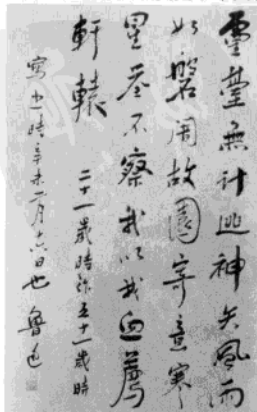 靈臺無計逃神矢風雨
如磐闇故園寄意寒
星荃不察我以我血薦
軒轅　二十一歲時作五十一歲時
寫之時辛未二月十六日也　魯迅